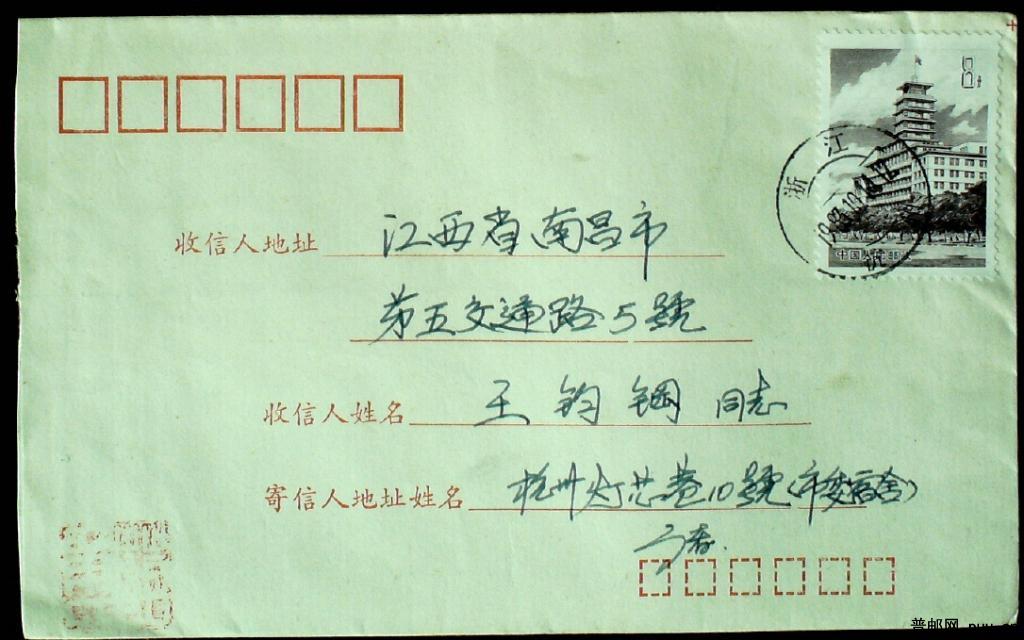 8分
中国人民邮政
浙江
收信人地址 江西省南昌市
第五交通路5號
收信人姓名 王钧钢同志
寄信人地址姓名 杭州灯芯巷10號(市委宿舍)
普邮网